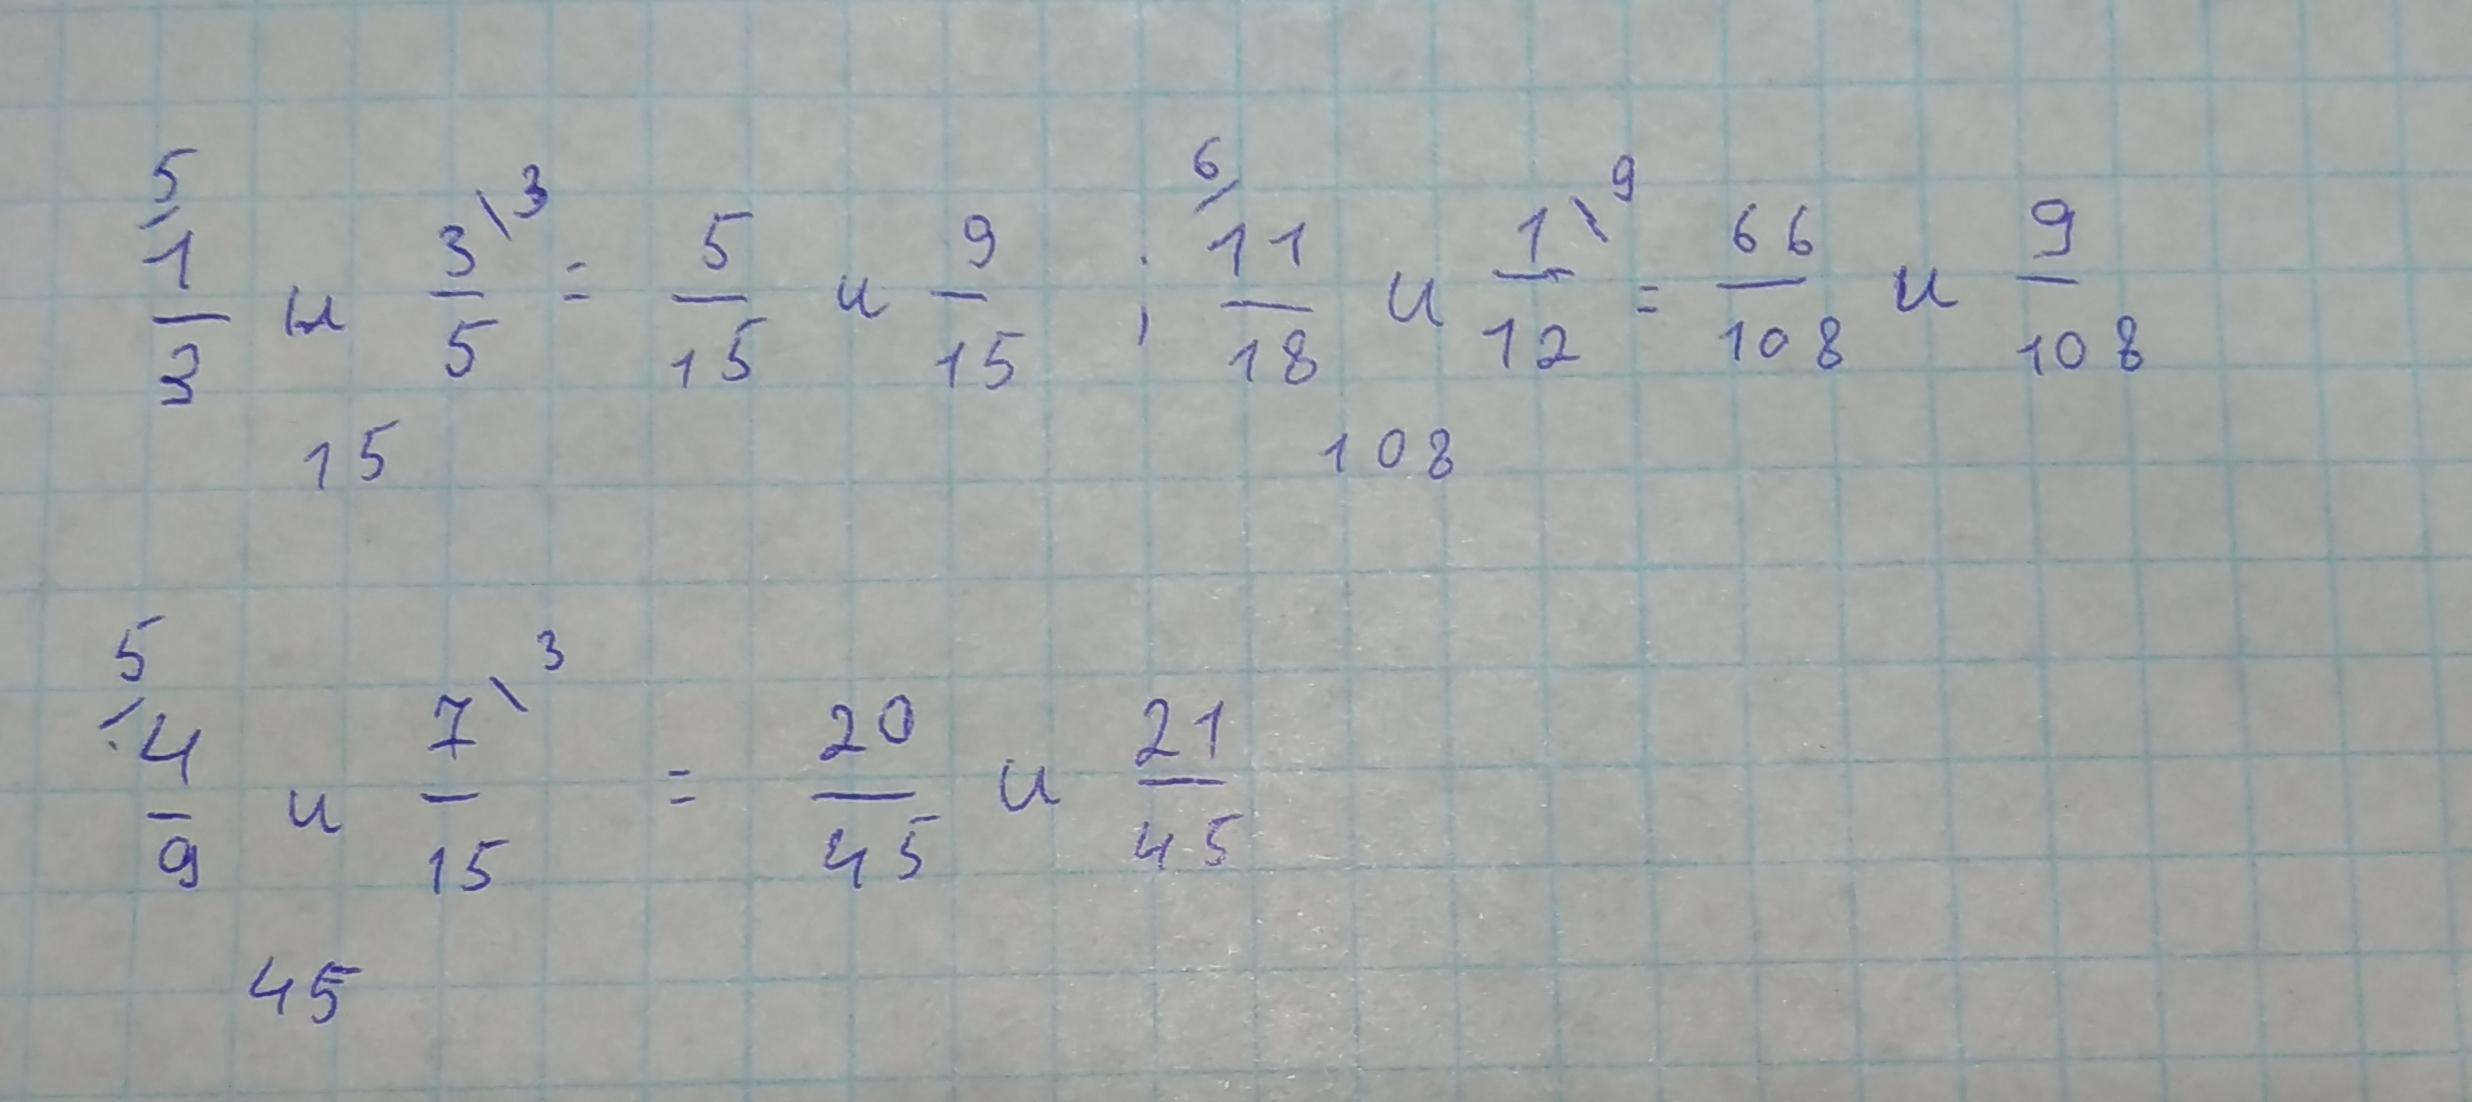 5/ 1/3 и 3/5 \3 = 5/15 и 9/15 ; 6/ 11/18 и 1/12 \9 = 66/108 и 9/108
15 108
5/ 4/9 и 7/15 \3 = 20/45 и 21/45
45